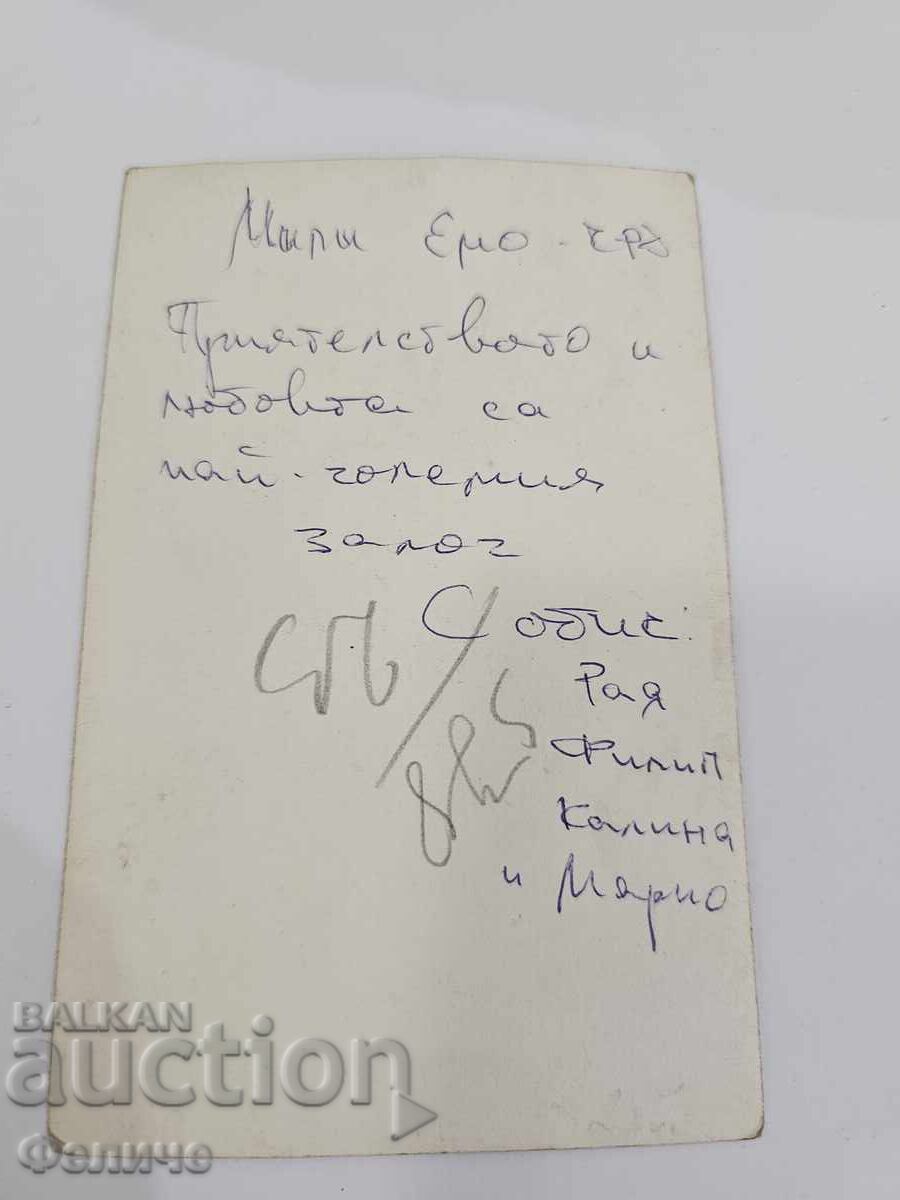 Мили Емо
Приятелството и
любовта са
най-големия
залог
С обич:
Рая
Филип
Калина
и Марио
BALKAN
auction
Феличе